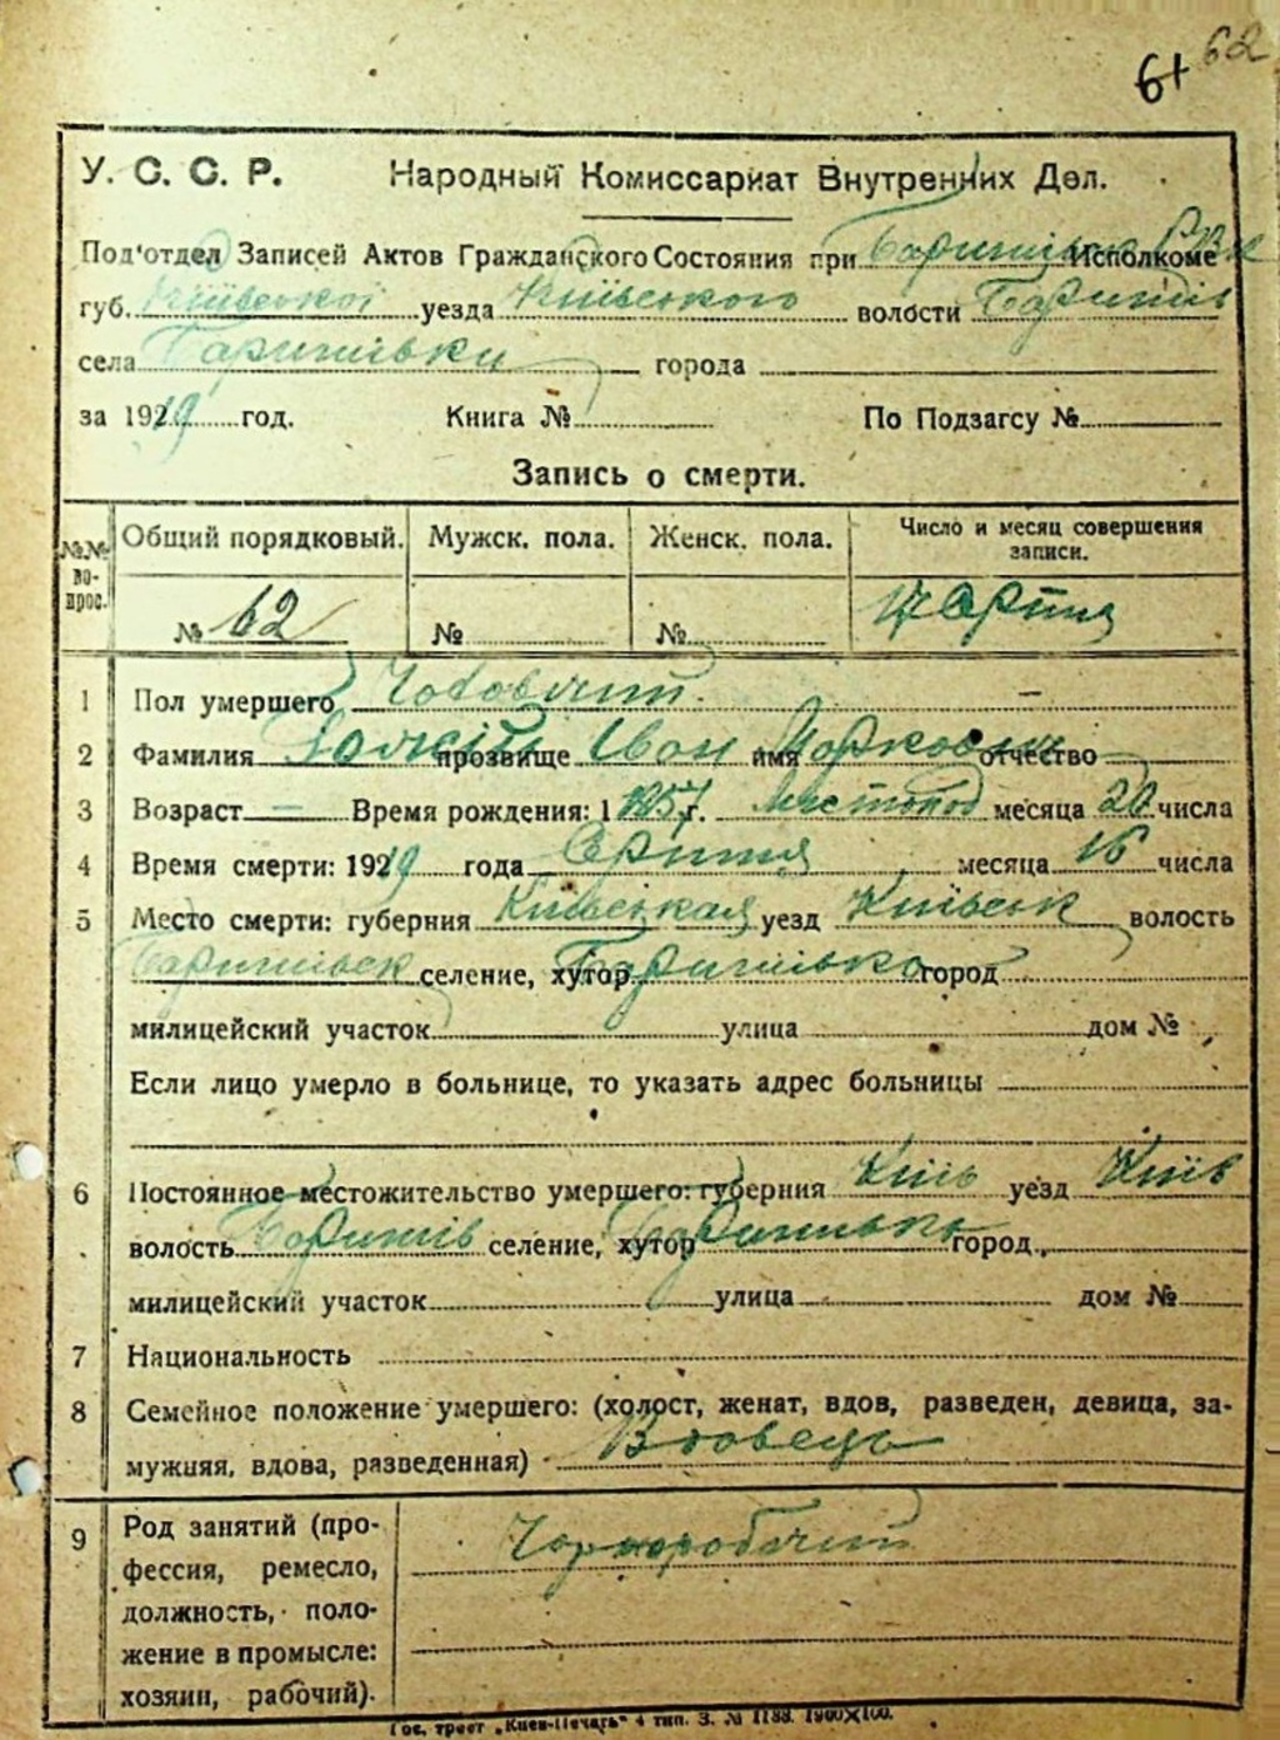 61 62
У. С. С. Р. Народный Комиссариат Внутренних Дел.
Под'отдел Записей Актов Гражданского Состояния при Исполкоме
губ. Київської уезда Київського волости Баришів
села Баришівки города
за 1929 год. Книга № По Подзагсу №
Запись о смерти.
№№ вопрос. Общий порядковый. Мужск. пола. Женск. пола. Число и месяц совершения записи.
№ 62 № №
1 Пол умершего Чоловічий.
2 Фамилия прозвище Іван имя Маркович отчество
3 Возраст — Время рождения: 1857 г. Листопод месяца 20 числа
4 Время смерти: 1929 года месяца 16 числа
5 Место смерти: губерния Київськая уезд Київськ волость
Баришівськ селение, хутор Баришівка город
милицейский участок улица дом №
Если лицо умерло в больнице, то указать адрес больницы
6 Постоянное местожительство умершего: губерния Київ уезд Київ
волость Баришів селение, хутор Баришівка город
милицейский участок улица дом №
7 Национальность
8 Семейное положение умершего: (холост, женат, вдов, разведен, девица, за-
мужняя, вдова, разведенная) Вдовець
9 Род занятий (про- Чорноробочий
фессия, ремесло,
должность, поло-
жение в промысле:
хозяин, рабочий).
Гос. трест „Киев-Печать" 4 тип. З. № 1188. 1900×100.